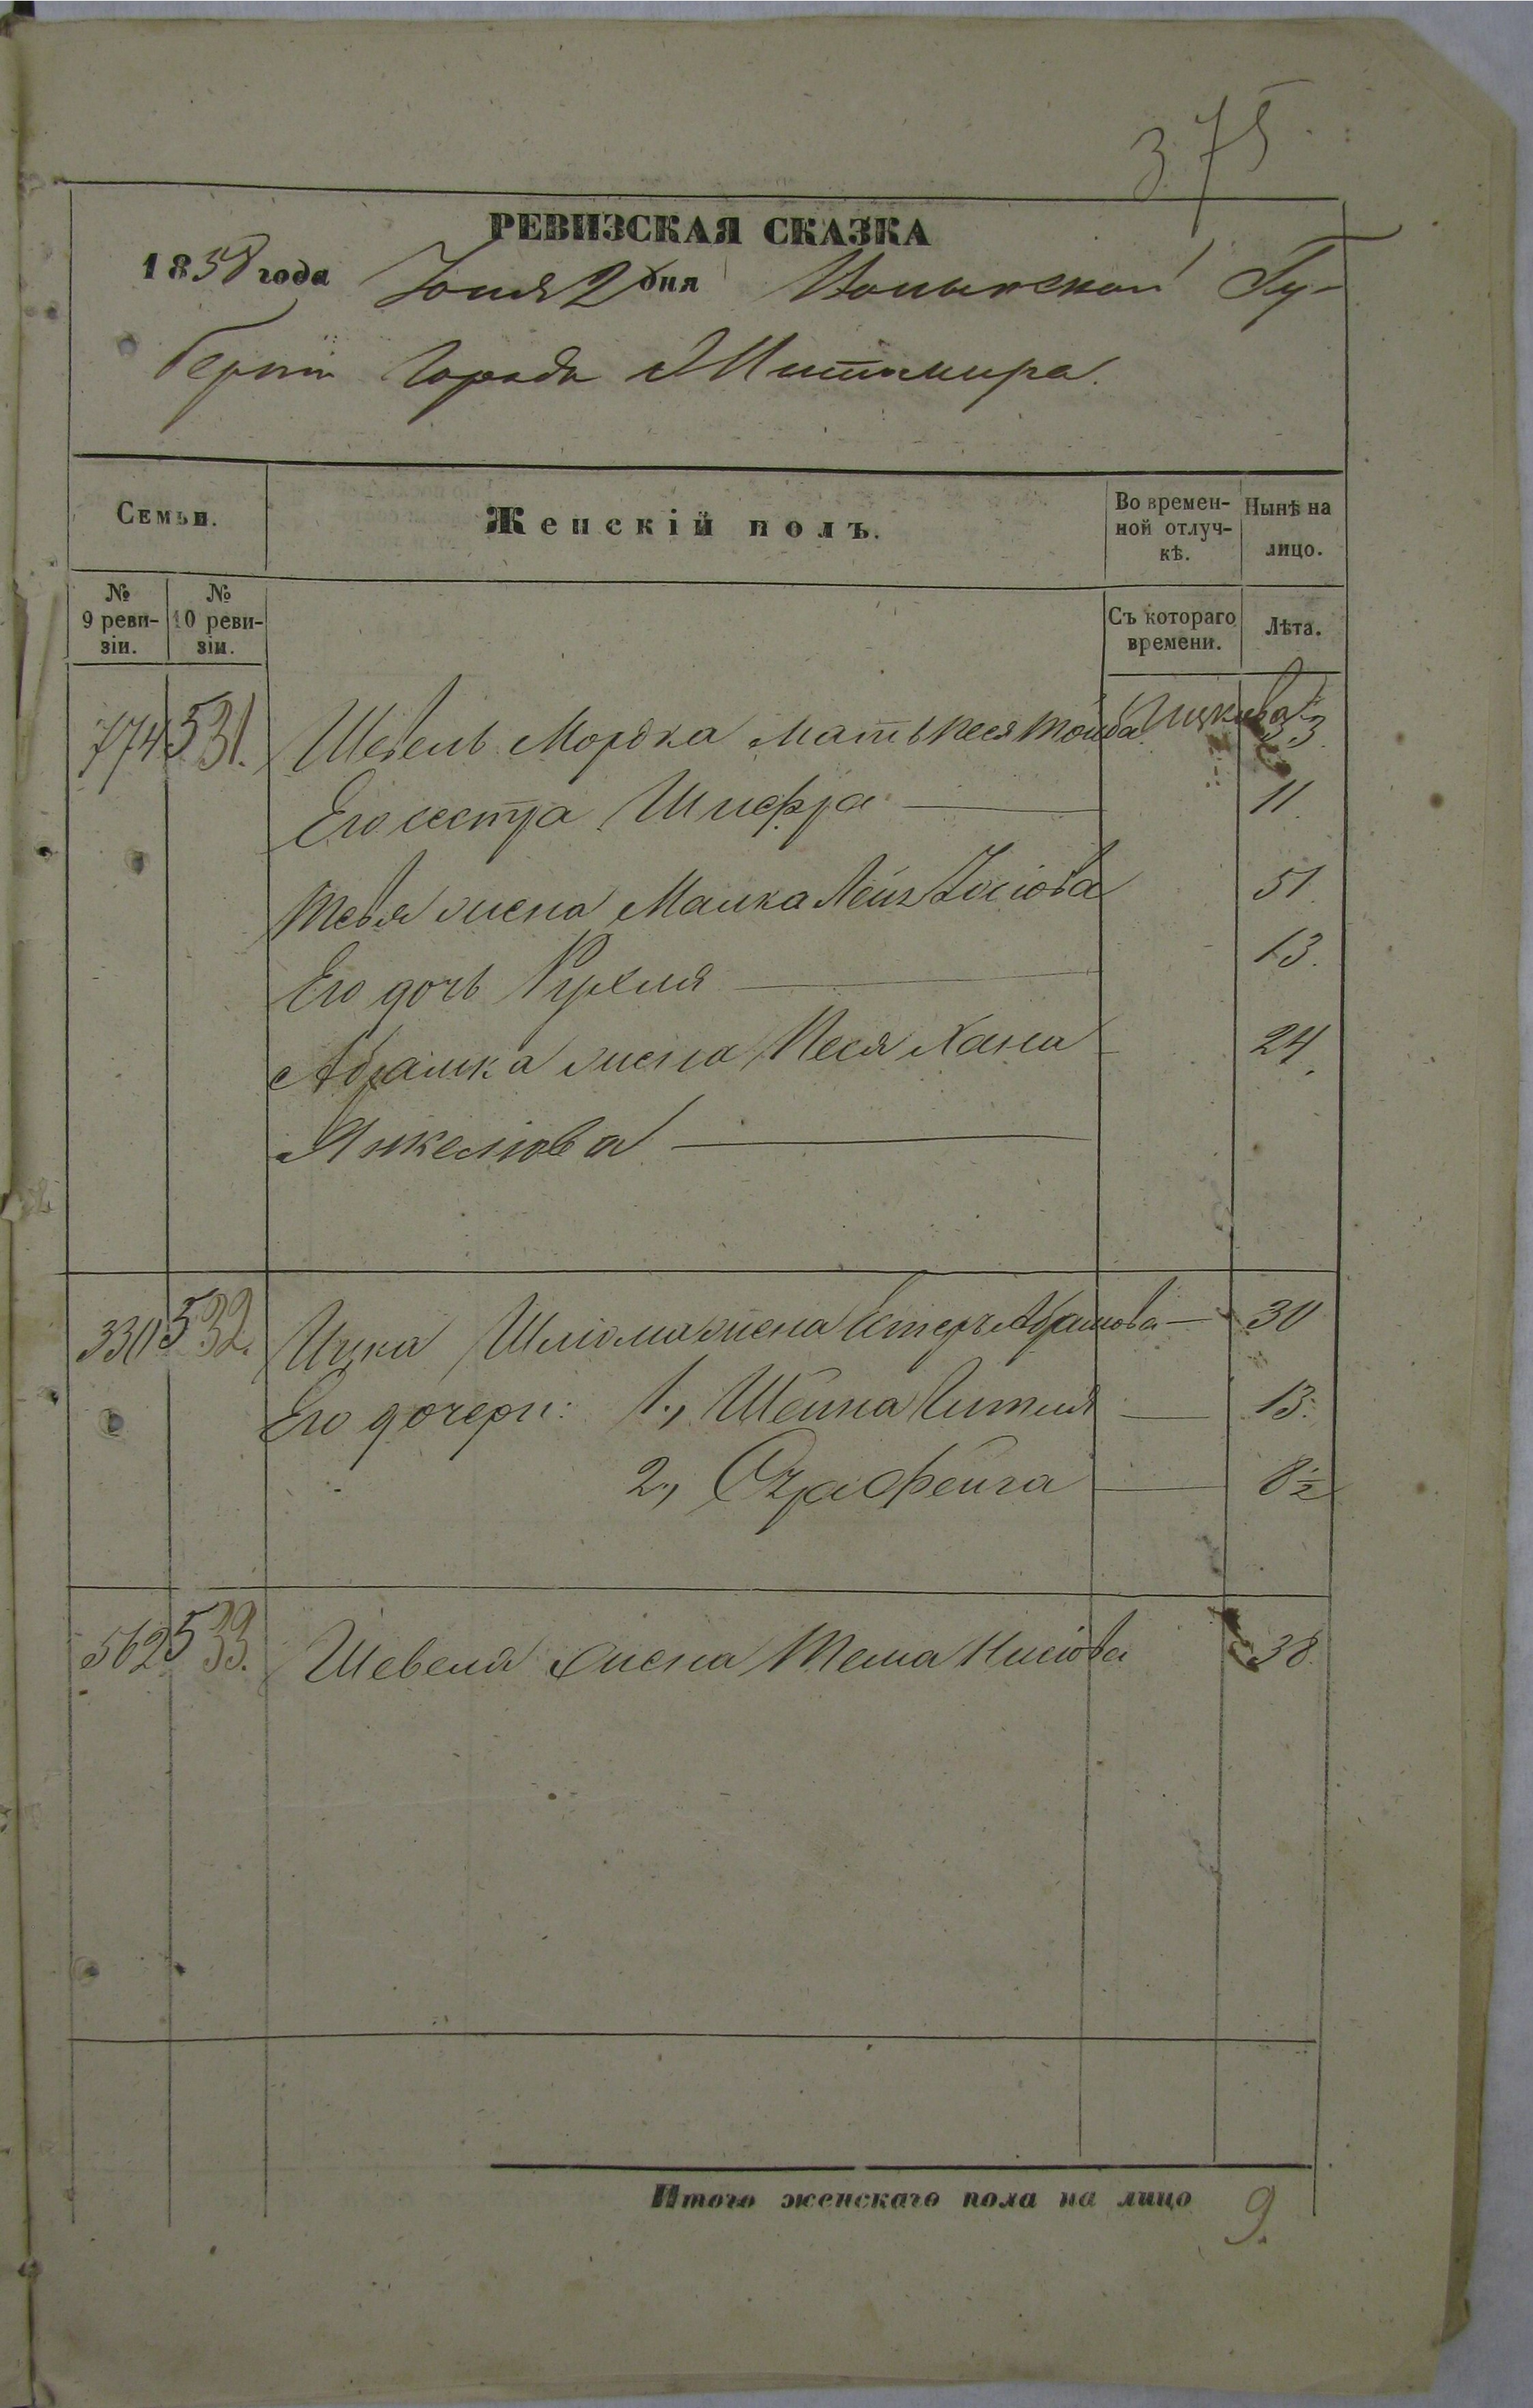 375.
РЕВИЗСКАЯ СКАЗКА
1858 года Іюня 2 дня Волынской Гу-
берніи города Житомира.
Семьи.
Женскій полъ.
Во времен-
ной отлуч-
кѣ.
Нынѣ на
лицо.
№
9 реви-
зіи.
№
10 реви-
зіи.
Съ котораго
времени.
Лѣта.
774 531. Шевель Мордка мать Песя Тойба Ицкова 33.
Его сестра Шифра 11.
Тевя жена Малка Лейз Іосіова 51.
Его дочь Рухля 13.
Абрамка жена Песя Хана 24.
Янкелюва
330 532. Ицка Шлiома жена Естеръ Абрамова 30
Его дочери: 1., Шейна Гитля 13.
2., Фейга 8½
562 533. Шевеля жена Тема 38.
Итого женскаго пола на лицо 9.